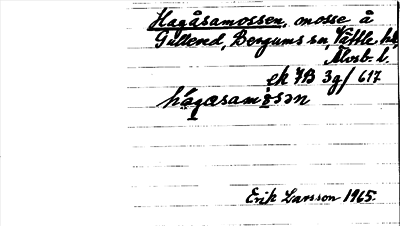 Hagåsamossen, mosse å
Gullered, Bergums sn, Vättle hd,
Älvsb. l.
ek 7B 3g/ 617
hágasamòsən
Erik Larsson 1965.